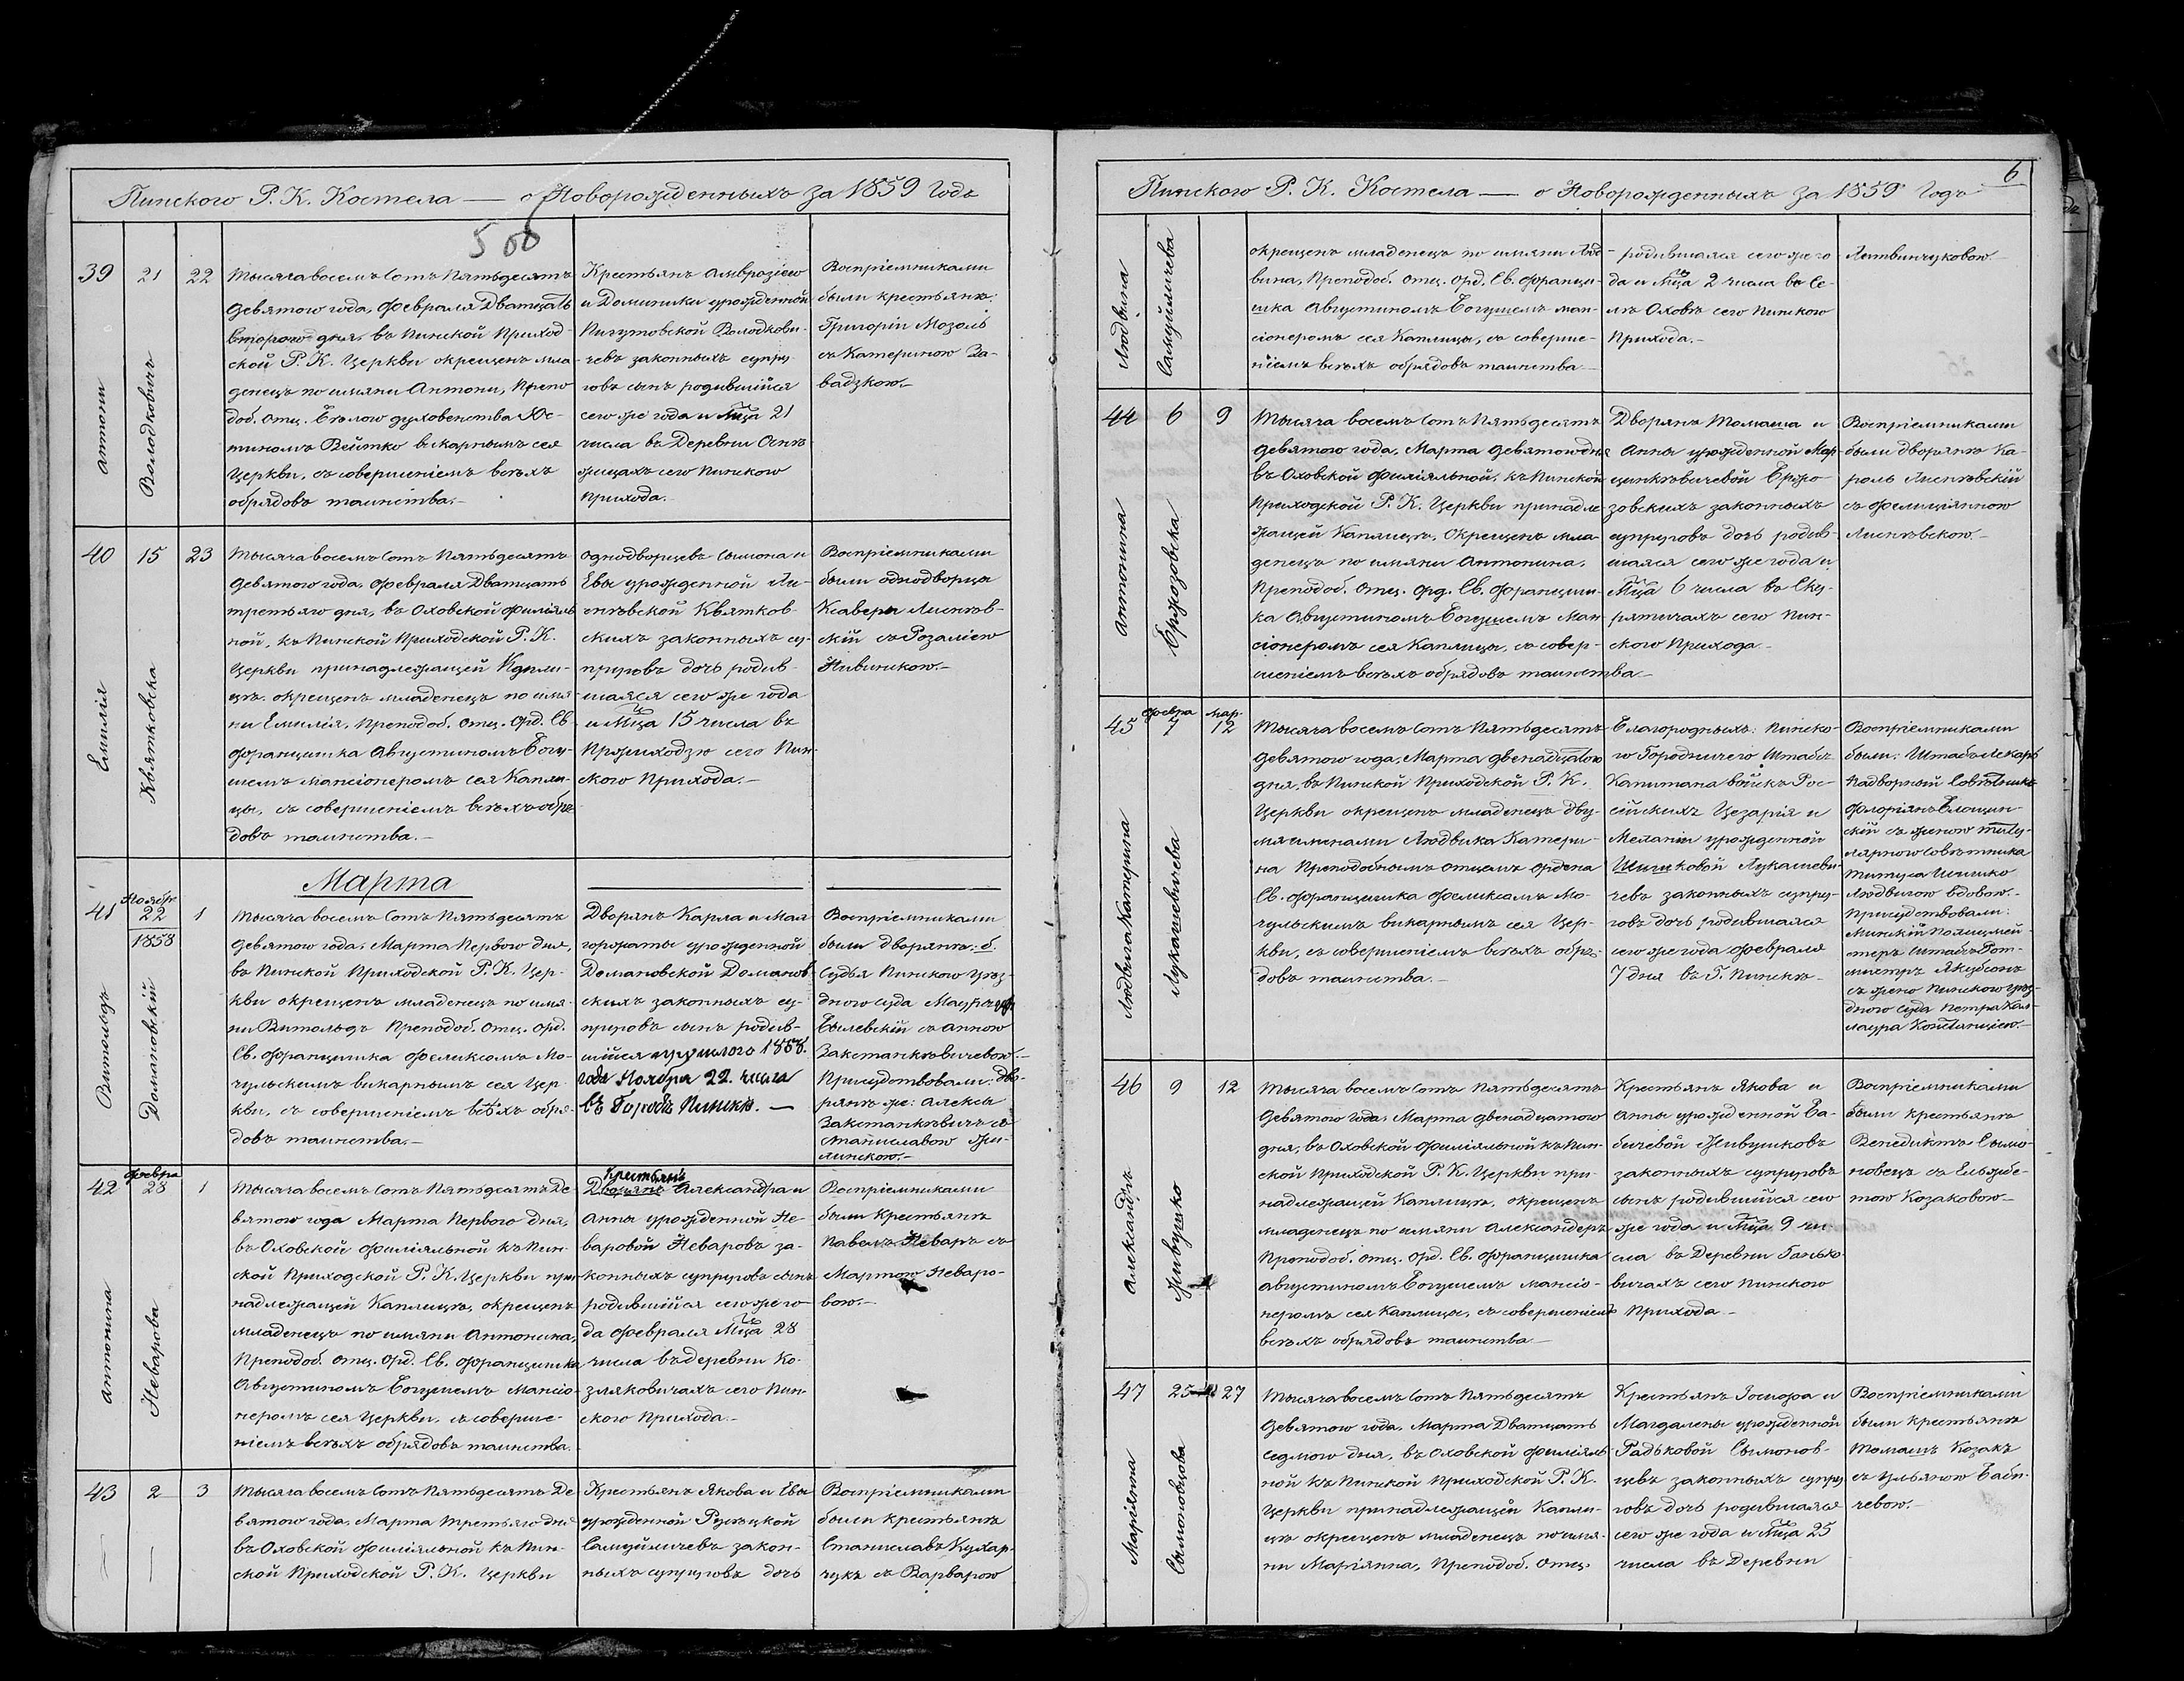 Пинского Р. К. Костела — о Новорожденныхъ за 1859 Годъ
5 об
39
21
22
Антони
Володковичъ
Тысяча восемъ Сотъ Пятьдесятъ
девятого года, Февраля Дватцать
второго дня, въ Пинской Приход-
ской Р. К. Церкви окрещенъ мла
денецъ по имяни Антони, Препо
доб. Отц. Бѣлого духовенства Юс-
тиномъ Войтко викарнымъ сея
Церкви, съ совершеніемъ всѣхъ
обрядовъ таинства.-
Крестьянъ Амврозіего
и Доминики урожденной
Пигутовской Володкови-
чевъ законныхъ супру-
говъ сынъ родившійся
сего же года и Мца 21
числа въ Деревни
жицахъ сего Пинского
Прихода.-
Воспріемниками
были крестьянъ:
Григоріи Мозоль
съ Катериною За-
вадзкою.-
40
15
23
Емилія
Квятковска
Тысяча восемъ Сотъ Пятьдесятъ
девятого года, Февраля Дватцать
третьяго дня, въ Оховской Филіяль
ной, къ Пинской Приходской Р. К.
Церкви принадлежащей Капли-
цѣ, окрещенъ младенецъ по имя-
ни Емилія, Преподоб. Отц. Орд. Св
Францишка Августиномъ Богу-
шемъ мансіонеромъ сея Капли-
цы, съ совершеніемъ всѣхъ обря
довъ таинства.-
Однодворцевъ Сымона и
Евы урожденной Ли-
снѣвской Квятков-
скихъ законныхъ су-
пруговъ дочь родив-
шаяся сего же года
и Мца 15 числа въ
сего Пин-
ского Прихода.-
Воспріемниками
были однодворцы
Ксавери Лиснѣв-
скій съ Розаліею
Нивинскою.-
Марта
41
Ноябр
22
1858
1
Витольдъ
Домановскій
Тысяча восемъ Сотъ Пятьдесятъ
девятого года, Марта Первого дня,
въ Пинской Приходской Р. К. Цер-
кви окрещенъ младенецъ по имя-
ни Витольдъ Преподоб. Отц. Орд.
Св. Францишка Феликсомъ Мо-
чульскимъ викарнымъ сея Цер-
кви, съ совершеніемъ всѣхъ обря-
довъ таинства.-
Дворянъ Карла и Мал
горжаты урожденной
Домановской Доманов
скихъ законныхъ су-
пруговъ сынъ родив-
шійся прошлого 1858.
года Ноября 22. числа
въ Городѣ Пинскѣ. —
Воспріемниками
были дворянъ: б.
Судья Пинского уѣз-
дного Суда
Былевскій съ Анною
Закстанкѣвичевою.-
Присудствовали: дво-
рянъ же: Алексы
Закстанкѣвичъ съ
Станиславою Жи-
линскою.-
42
Февра
28
1
Антонина
Неварова
Тысяча восемъ Сотъ Пятьдесятъ Де
вятого года Марта Первого Дня,
въ Оховской Филіяльной къ Пин-
ской Приходской Р. К. Церкви при-
надлежащей Каплицѣ, окрещенъ
младенецъ по имяни Антонина,
Преподоб. Отц. Орд. Св. Францишка
Августиномъ Богушемъ Мансіо-
неромъ сея Церкви, съ соверше-
ніемъ всѣхъ обрядовъ таинства.
Крестьянъ
Дворянъ Александра и
Анны урожденной Не-
варовой Неваровъ за-
конныхъ супруговъ сынъ
родившійся сего же го-
да Февраля Мца 28
числа въ деревни Ко-
зляковичахъ сего Пин-
ского Прихода.-
Воспріемниками
были крестьянъ
Павелъ Неваръ съ
Мартою Неваро-
вою.-
43
2
3
Тысяча восемъ Сотъ Пятьдесятъ Де
вятого года, Марта третьяго дня
въ Оховской Филіяльной къ Пин-
ской Приходской Р. К. Церкви
Крестьянъ Якова и Евы
урожденной Рудзкой
Самуйличевъ закон-
ныхъ супруговъ дочь
Воспріемниками
были крестьянъ
Станиславъ Кухар-
чукъ съ Варварою
6
Пинского Р. К. Костела — о Новорожденныхъ за 1859 Годъ
Людвина
Самуйличева
окрещенъ младенецъ по имяни Люд-
вина, Преподоб. Отц. Орд. Св. Францы-
шка Августиномъ Богушемъ ман-
сіонеромъ сея Каплицы, съ соверше-
ніемъ всѣхъ обрядовъ таинства
родившаяся сего же го
да и Мца 2 числа во Се-
лѣ Оховѣ сего Пинского
Прихода.-
Литвинчуковою.-
44
6
9
Антонина
Бржозовска
Тысяча восемъ Сотъ Пятьдесятъ
девятого года, Марта девятого дня
въ Оховской Филіяльной, къ Пинской
Приходской Р. К. Церкви принадле
жащей Каплицѣ, окрещенъ мла-
денецъ по имяни Антонина,
Преподоб. Отц. Орд. Св. Францишь-
ка Августиномъ Богушемъ Ман-
сіонеромъ сея Каплицы, съ совер-
шеніемъ всѣхъ обрядовъ таинства-
Дворянъ Томаша и
Анны урожденной Мар-
цинкѣвичевой Бржо-
зовскихъ законныхъ
супруговъ дочь родив-
шаяся сего же года и
Мца 6 числа въ Ску-
рятичахъ сего Пин-
ского Прихода-
Воспріемниками
были дворянъ Ка-
роль Лиснѣвскій
съ Фелиціянною
Лиснѣвскою.-
45
Февра
7
мар.
12
Людвика Катерина
Лукашевичева
Тысяча восемъ Сотъ Пятьдесятъ
девятого года, Марта двенадцатого
дня, въ Пинской Приходской Р. К.
Церкви окрещенъ младенецъ дву-
мя именами Людвика Катери-
на Преподобнымъ отцемъ Ордена
Св. Францишка Феликсомъ Мо-
чульскимъ викарнымъ сея Цер-
кви, съ совершеніемъ всѣхъ обря-
довъ таинства.-
Благородныхъ: Пинско-
го Городничего Штабсъ
Капитана войскъ Рос-
сійскихъ Цезарія и
Меланіи урожденной
Шишковой Лукашеви-
чевъ законныхъ супру-
говъ дочь родившаяся
сего же года Февраля
7 дня въ Г. Пинскѣ-
Воспріемниками
были: Штабъ Лекарь
Надворный Совѣтникъ
Флоріянъ
скій съ женою титу-
лярного Совѣтника
Титуса Шишко
Людвикою вдовою.-
Присудствовали:
Минскій Полицмей-
стеръ Штабъ Рот-
мистръ Якубсонъ
съ жено Пинского уѣз-
дного Суда Петра
Констанціею.-
46
9
12
Александръ
Живушко
Тысяча восемъ Сотъ Пятьдесятъ
девятого года, Марта двенадцатого
дня, въ Оховской Филіяльной къ Пин-
ской Приходской Р. К. Церкви при-
надлежащей Каплицѣ, окрещенъ
младенецъ по имяни Александеръ
Преподоб. Отц. Орд. Св. Францишка
Августиномъ Богушемъ мансіо-
неромъ сея Каплицы, съ совершеніемъ
всѣхъ обрядовъ таинства-
Крестьянъ Якова и
Анны урожденной Ба-
бичевой Живушковъ
законныхъ супруговъ
сынъ родившійся сего
же года и Мца 9 чи
сла въ Деревни Ганько-
вичахъ сего Пинского
Прихода-
Воспріемниками
были крестьянъ
Венедиктъ Сымо-
новецъ съ Ельжбе-
тою Козаковою-
47
25
27
Маріянна
Сымоновцова
Тысяча восемъ Сотъ Пятьдесятъ
девятого года, Марта Дватцать
Седмого дня, въ Оховской Филіяль-
ной къ Пинской Приходской Р. К.
Церкви принадлежащей Капли-
цѣ окрещенъ младенецъ по имя-
ни Маріянна, Преподоб. Отц.
Крестьянъ Іосифа и
Магдалены урожденной
Радьковой Сымонов-
цевъ законныхъ супру
говъ дочь родившаяся
сего же года и Мца 25
числа въ Деревни
Воспріемниками
были крестьянъ
Томашъ Козакъ
съ Ульяною Баби-
чевою.-